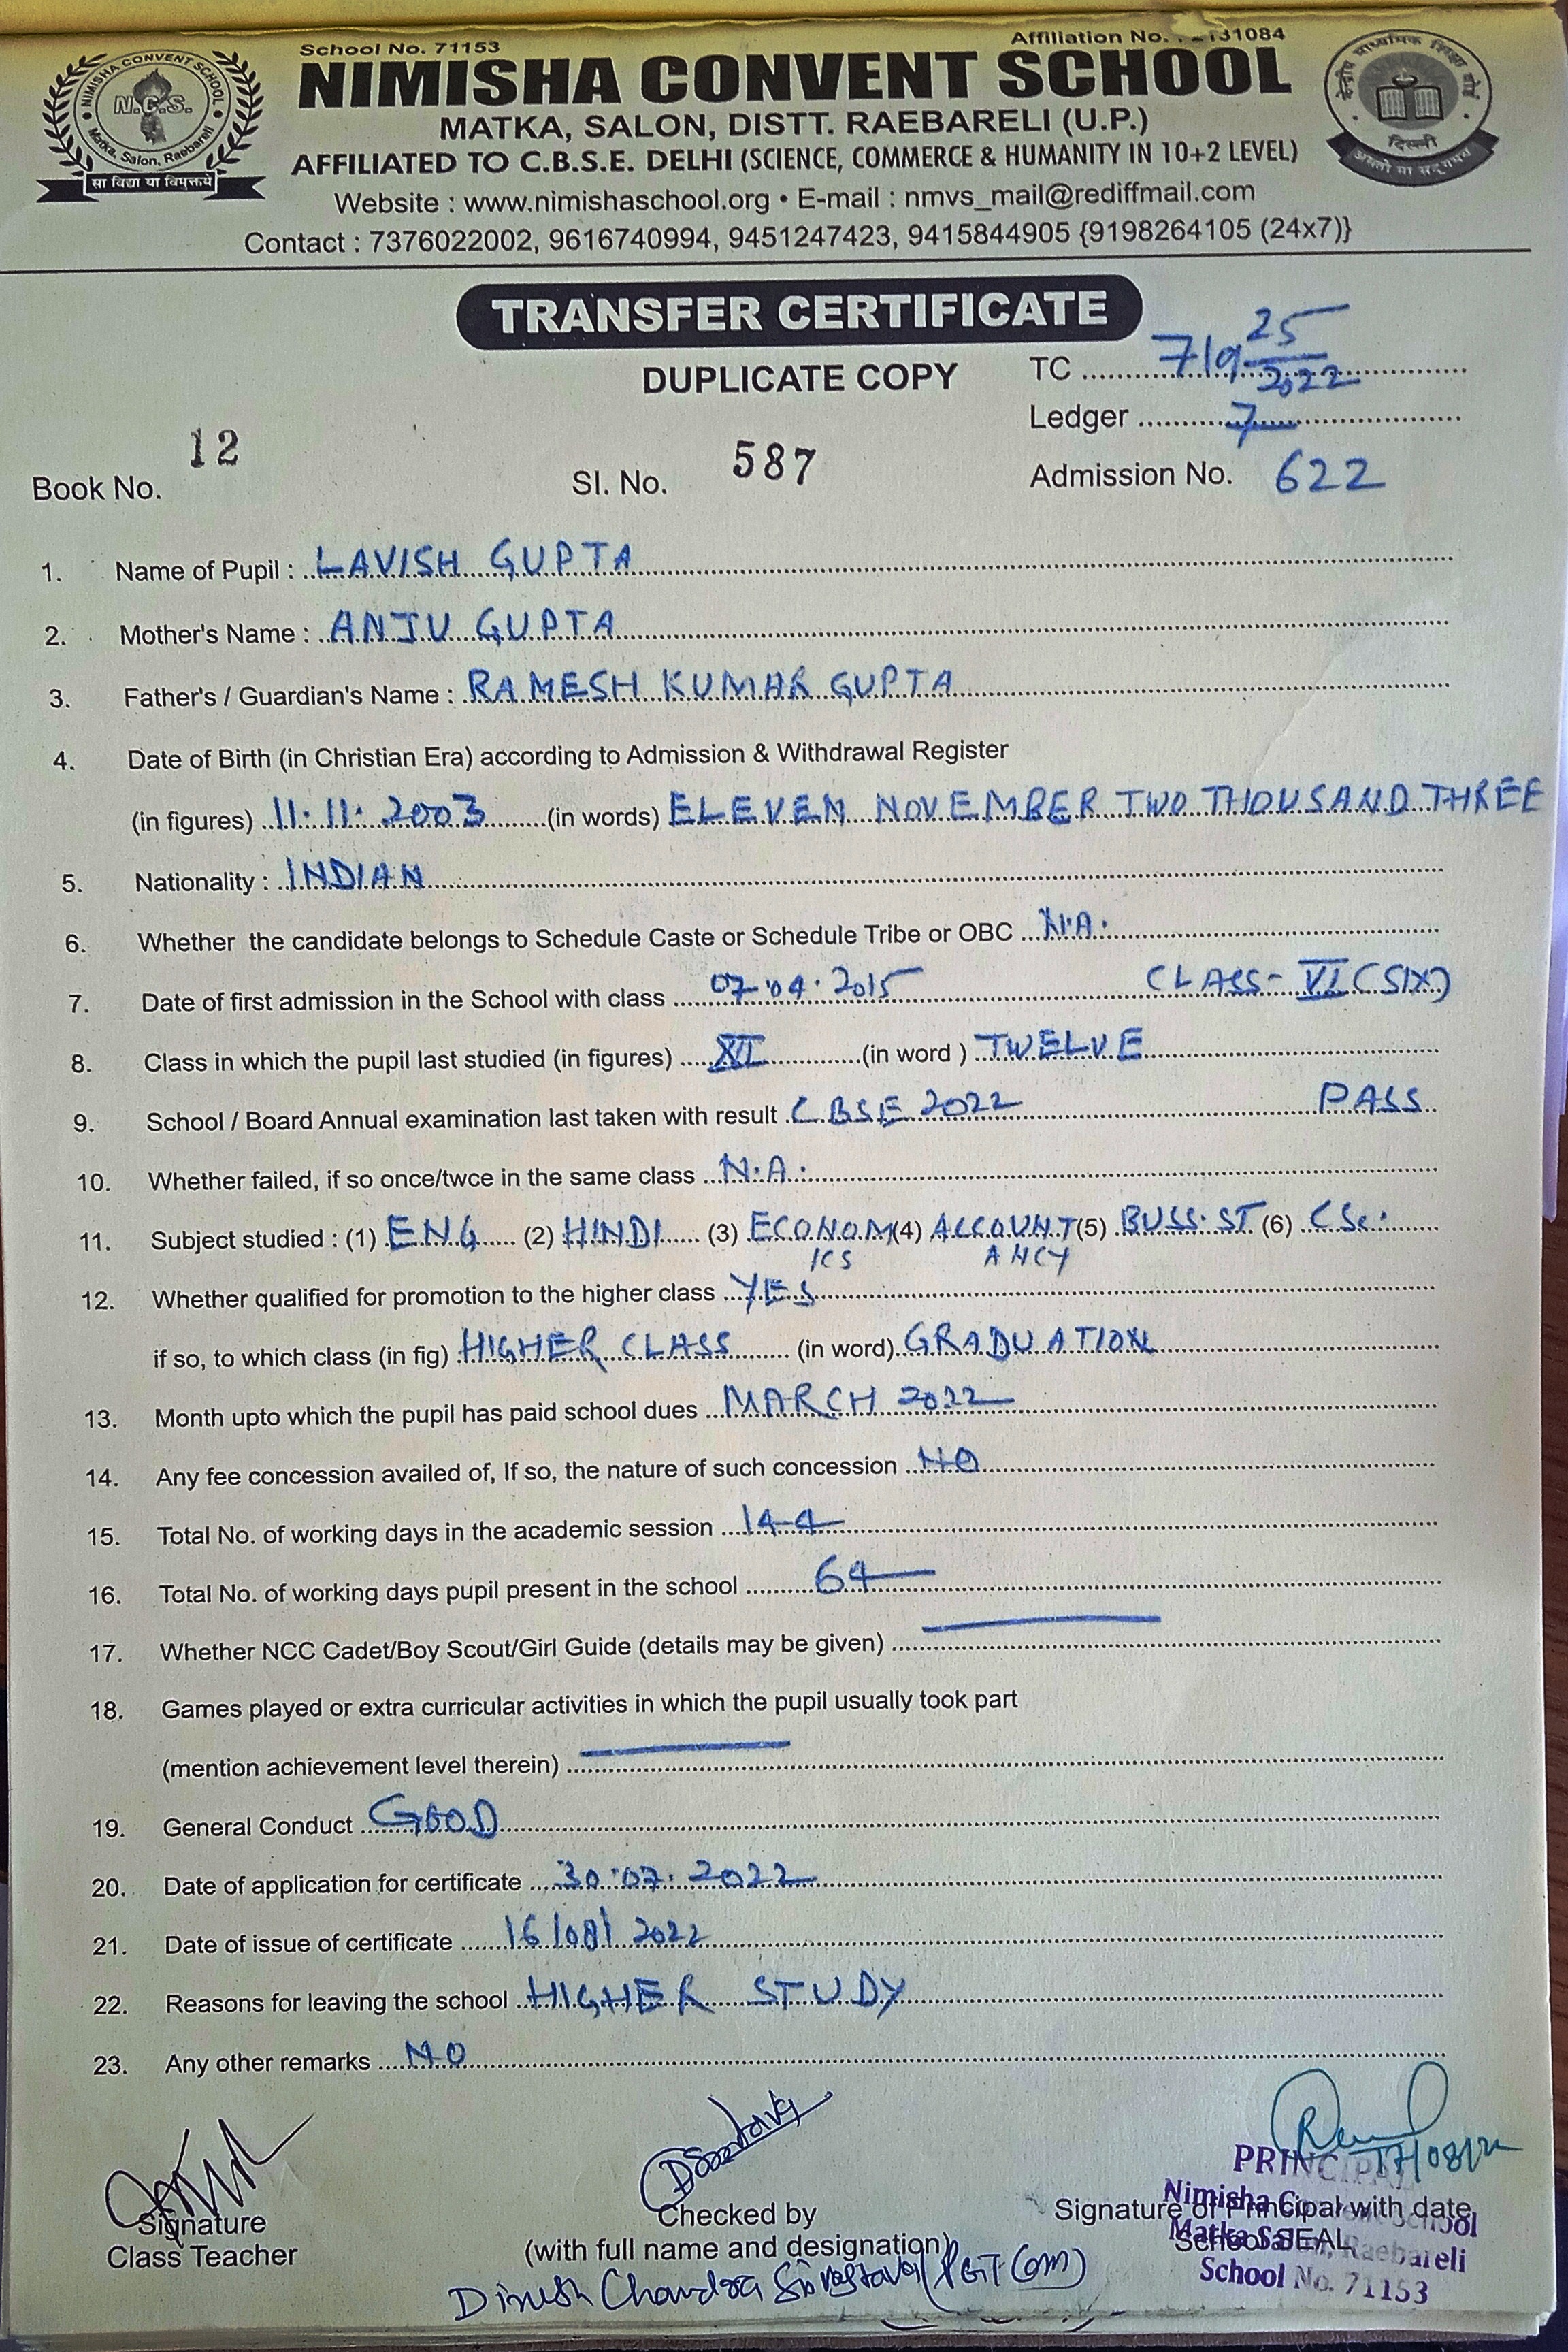 School No. 71153
Affiliation No. 2131084
NIMISHA CONVENT SCHOOL
MATKA, SALON, DISTT. RAEBARELI (U.P.)
AFFILIATED TO C.B.S.E. DELHI (SCIENCE, COMMERCE & HUMANITY IN 10+2 LEVEL)
Website : www.nimishaschool.org • E-mail : nmvs_mail@rediffmail.com
Contact : 7376022002, 9616740994, 9451247423, 9415844905 {9198264105 (24x7)}
NIMISHA CONVENT SCHOOL
N.C.S.
Matka, Salon, Raebareli
सा विद्या या विमुक्तये
केन्द्रीय माध्यमिक शिक्षा बोर्ड
दिल्ली
असतो मा सद्गमय
TRANSFER CERTIFICATE
DUPLICATE COPY
TC 719 25/2022
Ledger 7
Book No. 12 Sl. No. 587 Admission No. 622
1. Name of Pupil : LAVISH GUPTA
2. Mother's Name : ANJU GUPTA
3. Father's / Guardian's Name : RAMESH KUMAR GUPTA
4. Date of Birth (in Christian Era) according to Admission & Withdrawal Register
(in figures) 11.11.2003 (in words) ELEVEN NOVEMBER TWO THOUSAND THREE
5. Nationality : INDIAN
6. Whether the candidate belongs to Schedule Caste or Schedule Tribe or OBC N.A.
7. Date of first admission in the School with class 07.04.2015 CLASS- VI (SIX)
8. Class in which the pupil last studied (in figures) XII (in word ) TWELVE
9. School / Board Annual examination last taken with result CBSE 2022 PASS
10. Whether failed, if so once/twce in the same class N.A.
11. Subject studied : (1) ENG (2) HINDI (3) ECONOMICS (4) ACCOUNTANCY (5) BUSS. ST (6) CSc.
12. Whether qualified for promotion to the higher class YES
if so, to which class (in fig) HIGHER CLASS (in word) GRADUATION
13. Month upto which the pupil has paid school dues MARCH 2022
14. Any fee concession availed of, If so, the nature of such concession NO
15. Total No. of working days in the academic session 144
16. Total No. of working days pupil present in the school 64
17. Whether NCC Cadet/Boy Scout/Girl Guide (details may be given)
18. Games played or extra curricular activities in which the pupil usually took part
(mention achievement level therein)
19. General Conduct GOOD
20. Date of application for certificate 30.07.2022
21. Date of issue of certificate 16/08/2022
22. Reasons for leaving the school HIGHER STUDY
23. Any other remarks NO
Signature
Class Teacher
Checked by
(with full name and designation)
Dinesh Chandra Srivastava (PGT
Signature of Principal with date
School SEAL
PRINCIPAL
Nimisha Convent School
Matka Salon, Raebareli
School No. 71153